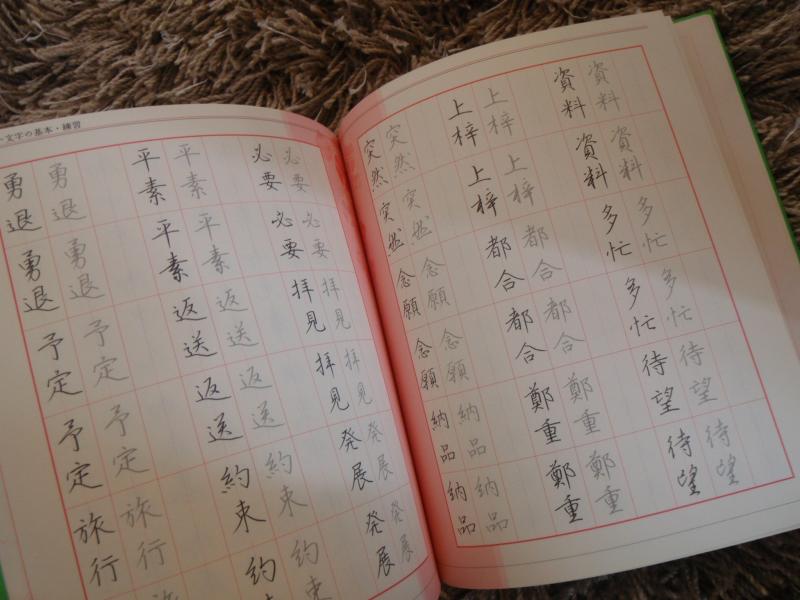 資料資料多忙多忙待望待望
資料資料多忙多忙待望待望
上梓上梓都合都合鄭重鄭重
上梓上梓都合都合鄭重鄭重
突然突然念願念願納品納品
突然突然念願念願納品納品
文字の基本・練習
必要必要拝見拝見発展発展
必要必要拝見拝見発展発展
平素平素返送返送約束約
平素平素返送返送約束約
勇退勇退予定予定旅行
勇退勇退予定予定旅行